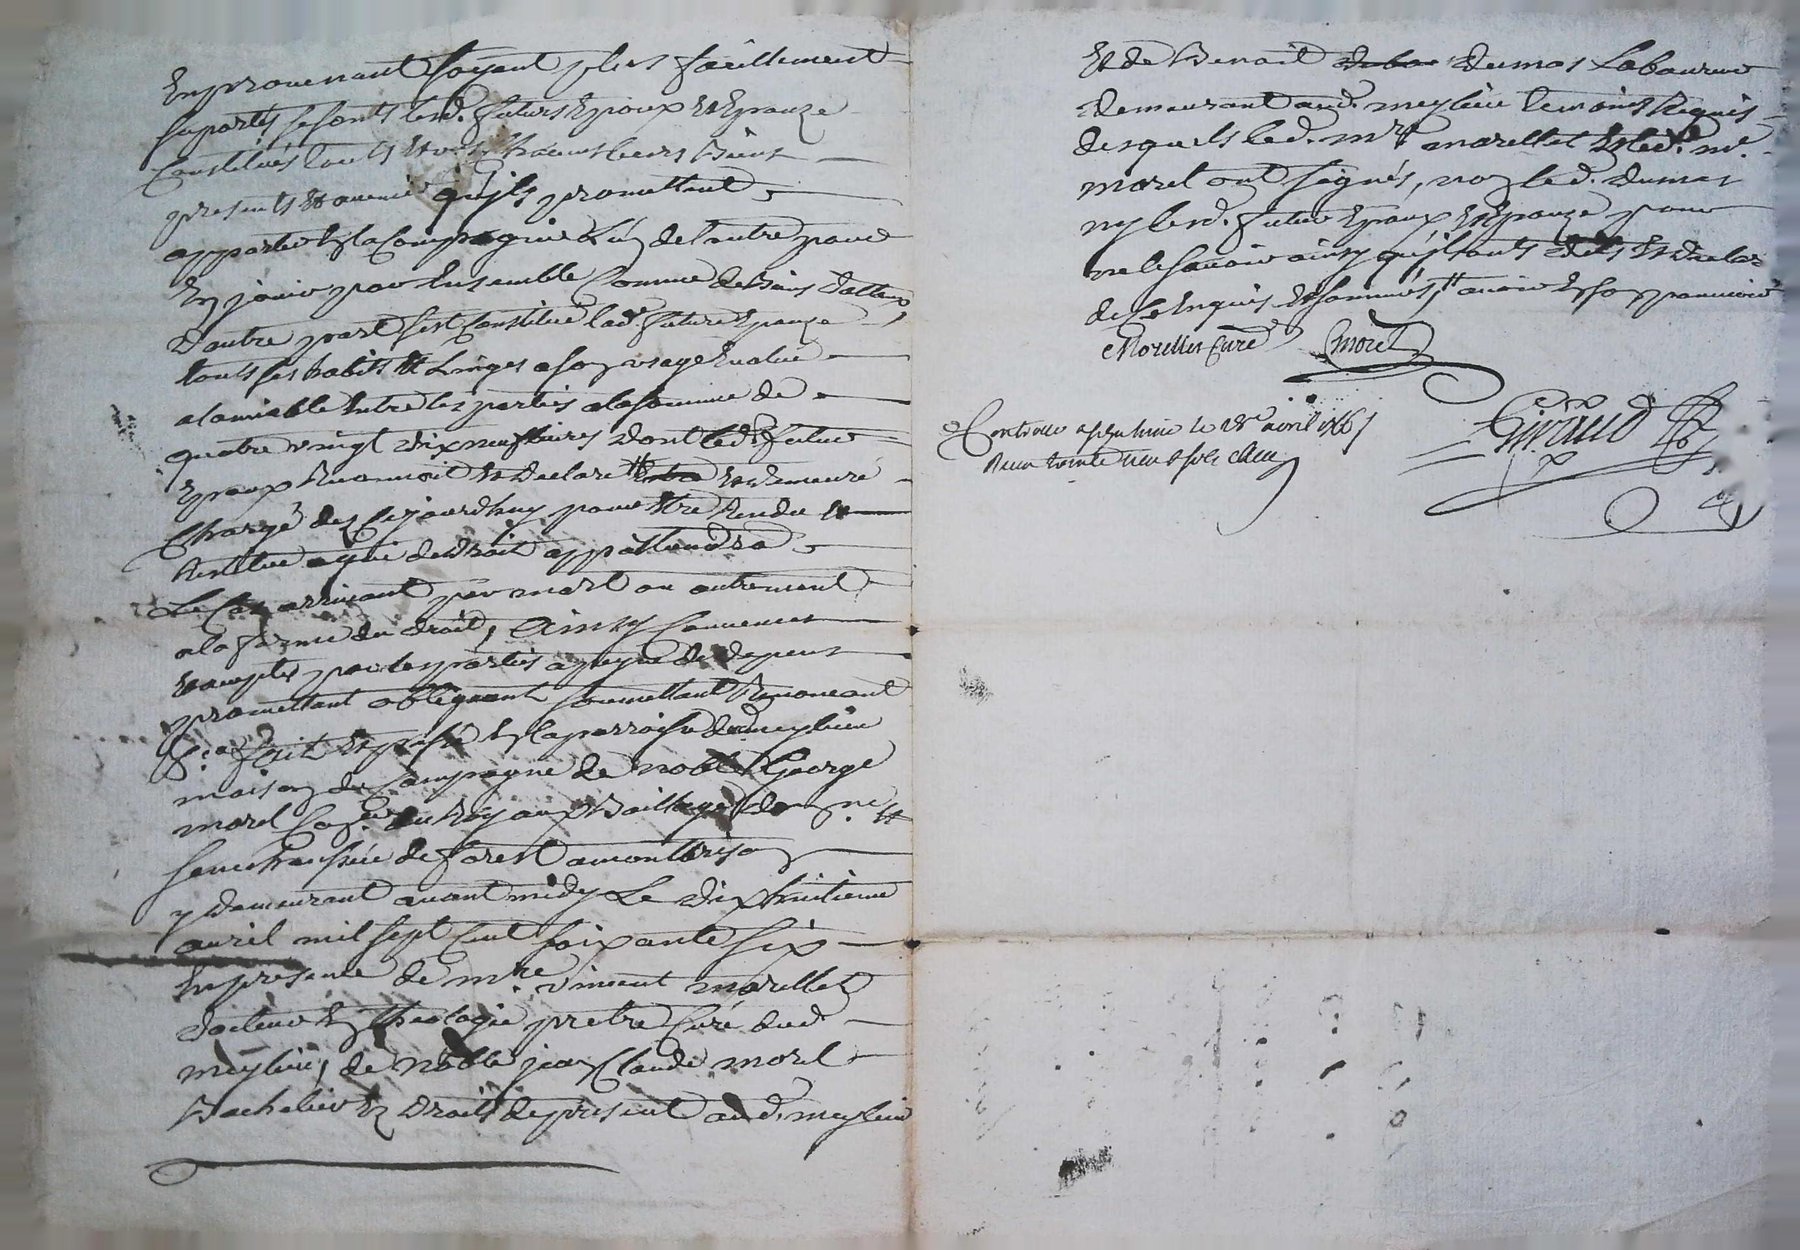 En provenant soyant plus facillement
suportés se sonts lesd. futurs Epoux Et Epouze
Constitués touts Et uns chacuns leurs Biens
presents Et avenir qu'ils promettent
apporter En la Compagnie L'un de l'autre pour
En jouir par Ensemble Comme de Biens Dottaux
D'autre part s'est Constitué lad. future Epouze
touts ses habits Et Linges a son usage Evalué
a lamiable Entre les parties a la somme de
quatre vingt dix neuf livres dont led. futur
Epoux Reconnoit Et Declare Et Demeure
Chargé dez Cejourdhuy pour Etre Rendu Et
Restitué a qui de droit appartiendra
Le Cas arrivant par mort ou autrement
a la forme du droit, Ainsy Convenu
Et accepté par les parties a peyne de depens
promettant obligeant soumettant Renonceant
&.ca fait Et passé En la parroisse de meylieu
maison de Campagne de noble George
morel Con.er du Roy aux Bailliage dom.ne Et
senechaussée de forest a montbrison
y demeurant avant midy Le dix huitieme
avril mil sept Cent soixante six
En presence de m.re vincent morellet
docteur En theologie pretre Curé dud.
meylieu, de noble jean Claude morel
Bachelier Ez droits de present aud. meylieu
Et de Benoit dumas Laboureur
demeurant aud. meylieu temoins Requis
desquels led. m.re morellet Et led. m.r
morel ont signés, non led. dumas
ny lesd. futur Epoux Et Epouze pour
ne le savoir ainsy qu'ils ont dits Et declaré
de ce Enquis Et sommés,
Morellet Curé Morel
Controlé le 28e avril 1766
Reçu trente neuf sols
Giraud